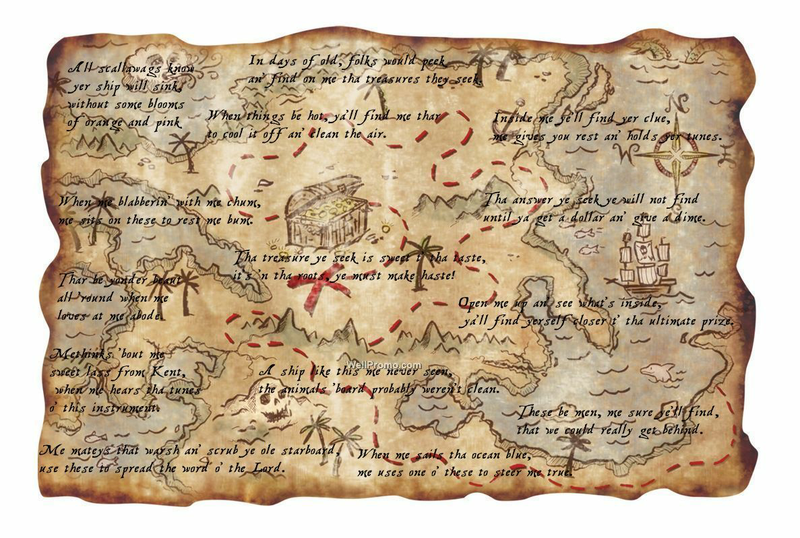 All scallawags know
yer ship will sink,
without some blooms
of orange and pink
In days of old, folks would peek
an' find on me tha treasures they seek.
When things be hot, ya'll find me thar
to cool it off an' clean the air.
Inside me ye'll find yer clue,
me gives you rest an' holds yer tunes.
N
W
When me blabberin' with me chum,
me sits on these to rest me bum.
Tha answer ye seek ye will not find
until ya get a dollar an' give a dime.
Tha treasure ye seek is sweet t' tha taste,
it's 'n tha roots, ye must make haste!
Thar be yonder beaut
all 'round when me
looks at me abode.
Open me up an' see what's inside,
ya'll find yerself closer t' tha ultimate prize.
Methinks 'bout me
sweet lass from Kent,
when me hears tha tunes
o' this instrument.
WellPromo.com
A ship like this me never seen,
the animals 'board probably weren't clean.
These be men, me sure ye'll find,
that we could really get behind.
Me mateys that warsh an' scrub ye ole starboard,
use these to spread the word o' the Lord.
When me sails tha ocean blue,
me uses one o' these to steer me true.